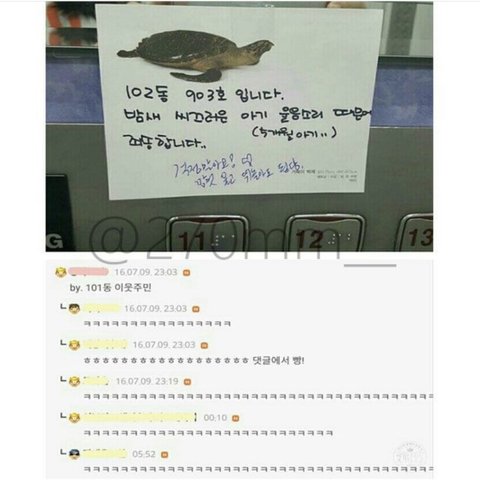 102동 903호 입니다.
밤새 씨끄러운 아기 울음소리 때문에
죄송합니다.. (5개월아기;;)
걱정말아요!
울고
11 12 13
@270mm__
16.07.09. 23:03
by. 101동 이웃주민
16.07.09. 23:03
ㅋㅋㅋㅋㅋㅋㅋㅋㅋㅋㅋㅋㅋㅋㅋㅋㅋㅋ
16.07.09. 23:03
ㅎㅎㅎㅎㅎㅎㅎㅎㅎㅎㅎㅎㅎㅎㅎㅎㅎㅎ 댓글에서 빵!
16.07.09. 23:19
ㅋㅋㅋㅋㅋㅋㅋㅋㅋㅋㅋㅋㅋㅋㅋㅋㅋㅋㅋㅋㅋㅋㅋㅋㅋㅋㅋㅋㅋㅋㅋㅋㅋㅋㅋㅋㅋ
00:10
ㅋㅋㅋㅋㅋㅋㅋㅋㅋㅋㅋㅋㅋㅋㅋㅋㅋㅋㅋㅋㅋㅋㅋㅋㅋㅋㅋ
05:52
ㅋㅋㅋㅋㅋㅋㅋㅋㅋㅋㅋㅋㅋㅋㅋㅋㅋㅋㅋㅋㅋㅋㅋㅋㅋㅋㅋㅋㅋㅋㅋㅋㅋㅋㅋㅋㅋ